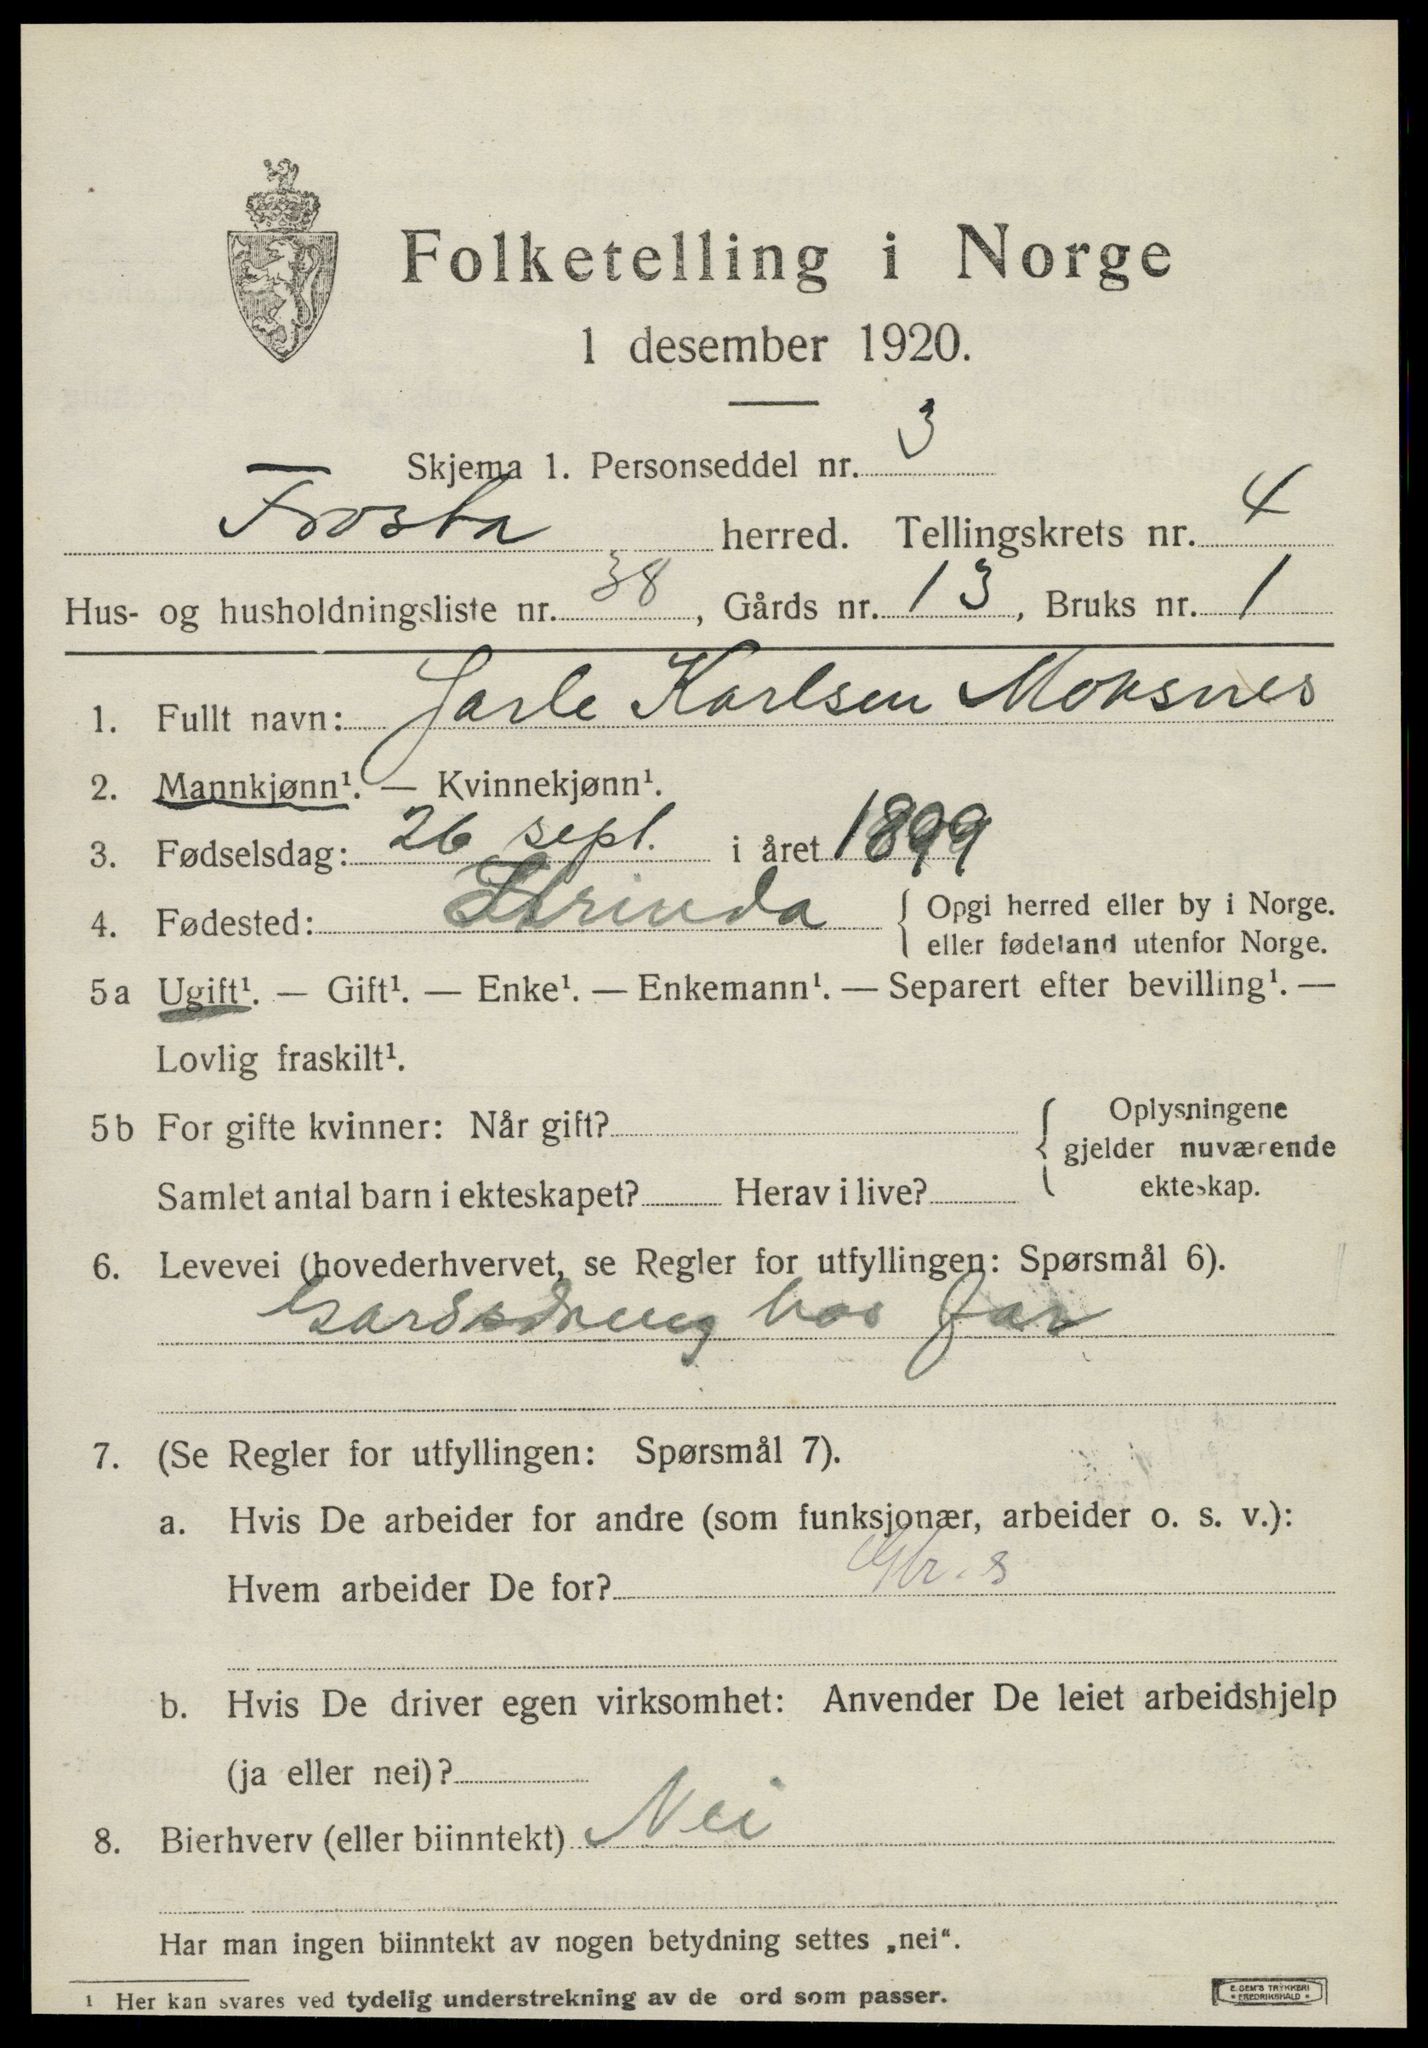 Folketelling i Norge
1 desember 1920.
Skjema 1. Personseddel nr. 3
Frosta herred. Tellingskrets nr. 4
Hus- og husholdningsliste nr. 38, Gårds nr. 13, Bruks nr. 1
1. Fullt navn: Jarle Karlsen Moksnes
2. Mannkjønn¹. — Kvinnekjønn¹.
3. Fødselsdag: 26 sept. i året 1899
4. Fødested: Strinda { Opgi herred eller by i Norge.
eller fødeland utenfor Norge.
5a Ugift¹. — Gift¹. — Enke¹. — Enkemann¹. — Separert efter bevilling¹. —
Lovlig fraskilt¹.
5b For gifte kvinner: Når gift? { Oplysningene
gjelder nuværende
Samlet antal barn i ekteskapet? Herav i live? ekteskap.
6. Levevei (hovederhvervet, se Regler for utfyllingen: Spørsmål 6).
Gardsdreng hos far
7. (Se Regler for utfyllingen: Spørsmål 7).
a. Hvis De arbeider for andre (som funksjonær, arbeider o. s. v.):
Hvem arbeider De for? Gbr. s
b. Hvis De driver egen virksomhet: Anvender De leiet arbeidshjelp
(ja eller nei)?
8. Bierhverv (eller biinntekt) Nei
Har man ingen biinntekt av nogen betydning settes „nei“.
¹ Her kan svares ved tydelig understrekning av de ord som passer.
E. SEM'S TRYKKERI
* FREDRIKSHALD *